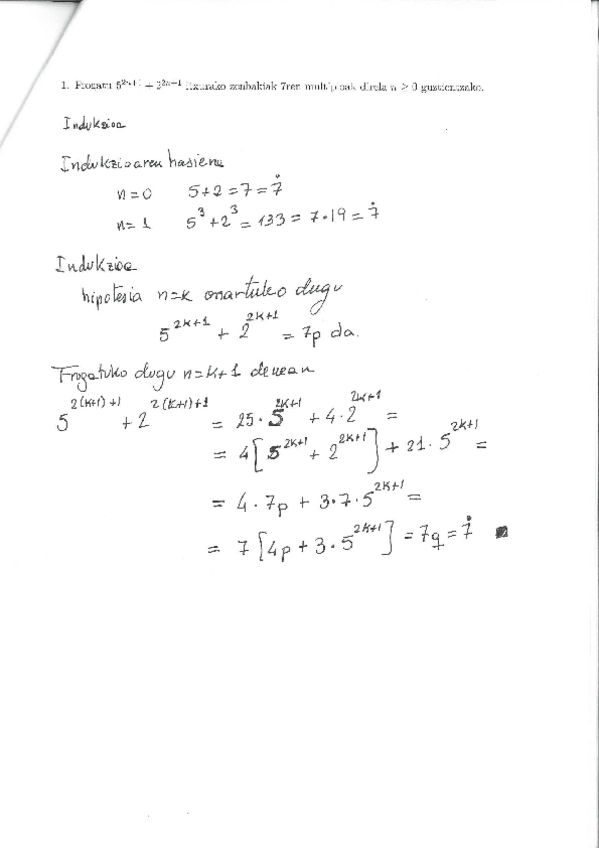 1. Frogatu 5^{2n+1} + 2^{2n+1} itxurako zenbakiak 7ren multiploak direla n ≥ 0 guztientzako.
Indukzioa
Indukzioaren hasiera
n=0 5+2=7=7̇
n=1 5^3+2^3=133=7·19=7̇
Indukzioa
hipotesia n=k onartuko dugu
5^{2k+1} + 2^{2k+1} = 7p da.
Frogatuko dugu n=k+1 denean
5^{2(k+1)+1} + 2^{2(k+1)+1} = 25·5^{2k+1} + 4·2^{2k+1} =
= 4[5^{2k+1} + 2^{2k+1}] + 21·5^{2k+1} =
= 4·7p + 3·7·5^{2k+1} =
= 7[4p + 3·5^{2k+1}] = 7q = 7̇ ■